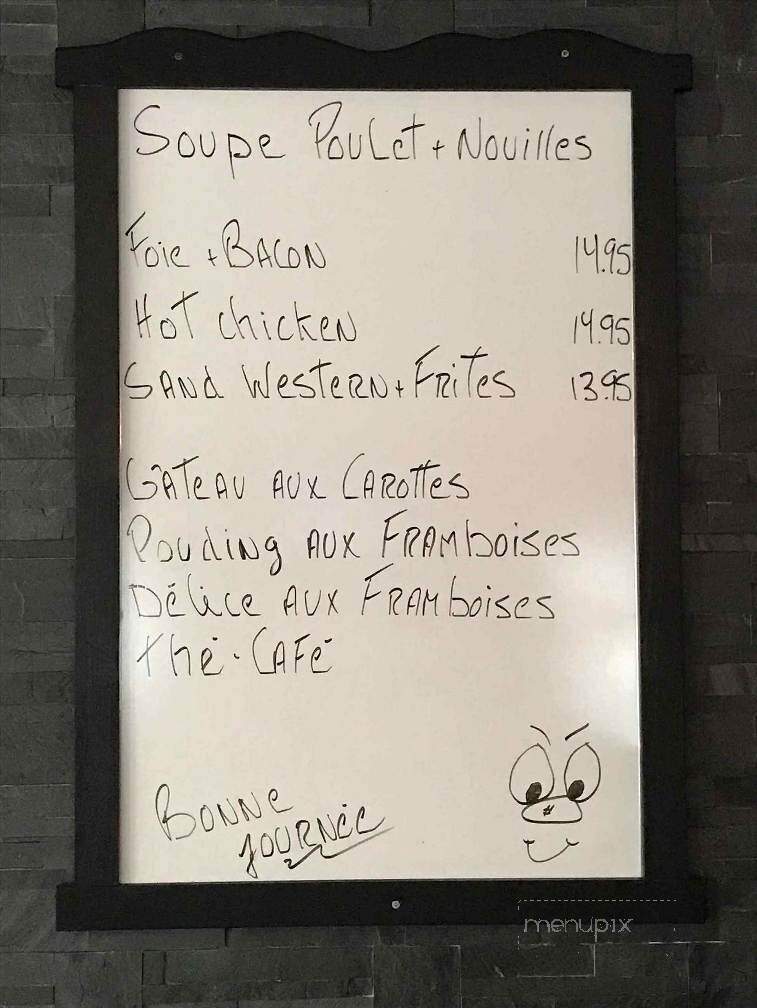 Soupe Poulet + Nouilles
Foie + Bacon 14.95
Hot chicken 14.95
Sand Western + Frites 13.95
Gâteau aux Carottes
Pouding aux Framboises
Délice aux Framboises
thé - Café
Bonne
Journée
menupix